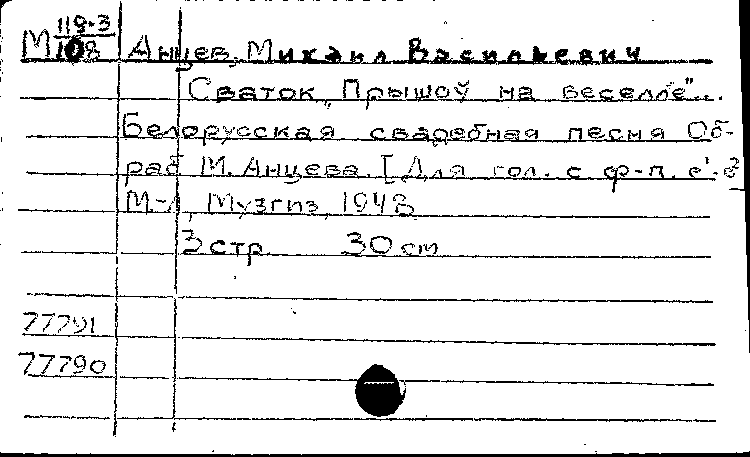 М 119-3/108 Анцев, Михаил Васильевич
Сваток „Прышоў на веселле"...
Белорусская свадебная песня Об-
раб М. Анцева. [Для гол. с ф-п.
М.-Л, Музгиз, 1948
3 стр 30 см
77791
77790